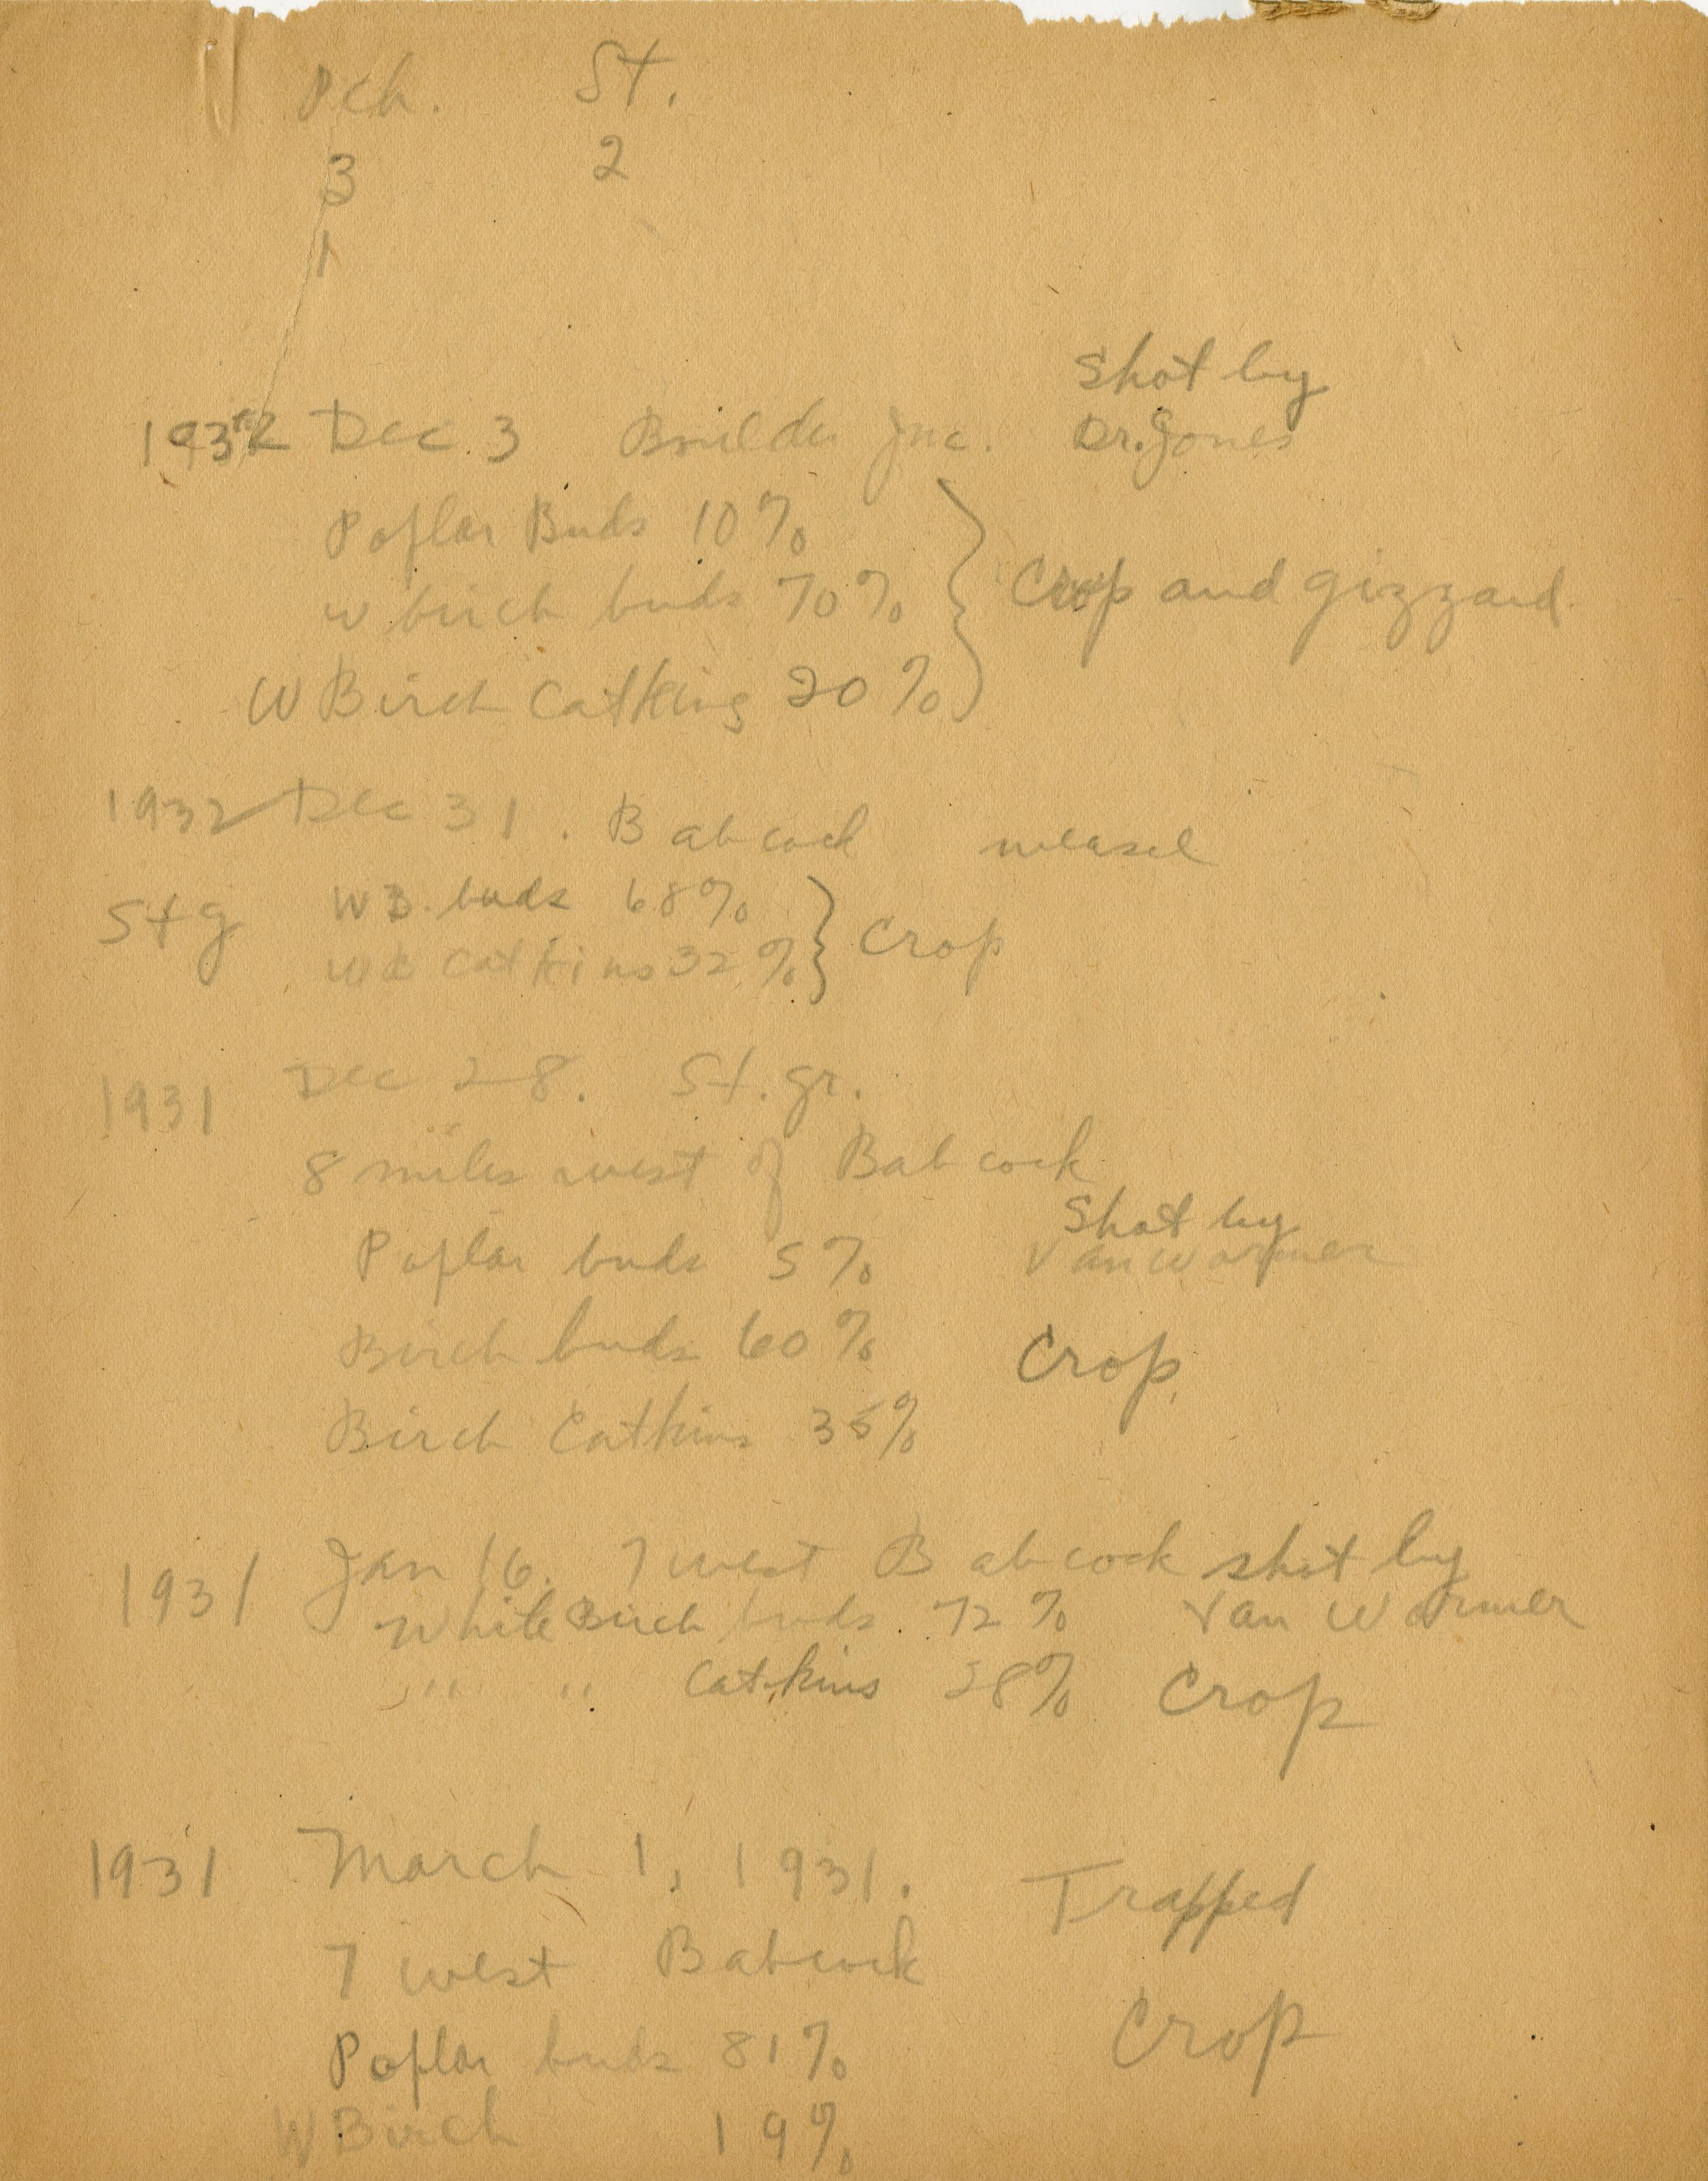 Pch. St.
3 2
1
Shot by
1932 Dec 3 Boulder Junc. Dr. Jones
Poplar Buds 10%
W birch buds 70% Crop and gizzard
W Birch Catkins 20%
1932 Dec 31. Babcock weasel
Stg WB. buds 68%
WB Catkins 32% Crop
1931 Dec 28. St. gr.
8 miles west of Babcock
Shot by
Poplar buds 5% Van Wormer
Birch buds 60% Crop
Birch Catkins 35%
1931 Jan 16. 7 west Babcock shot by
White Birch buds 72% Van Wormer
" " Catkins 28% Crop
1931 March 1, 1931. Trapped
7 west Babcock
Poplar buds 81% Crop
W Birch 19%